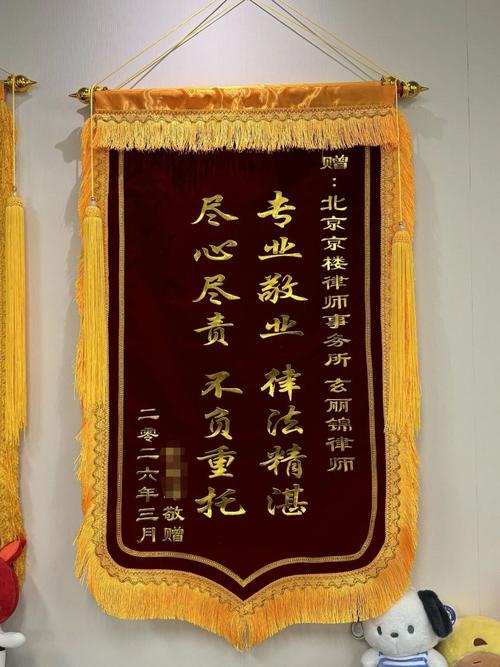 赠：北京京楼律师事务所 玄丽锦律师
专业敬业 律法精湛
尽心尽责 不负重托
敬赠
二零二六年三月